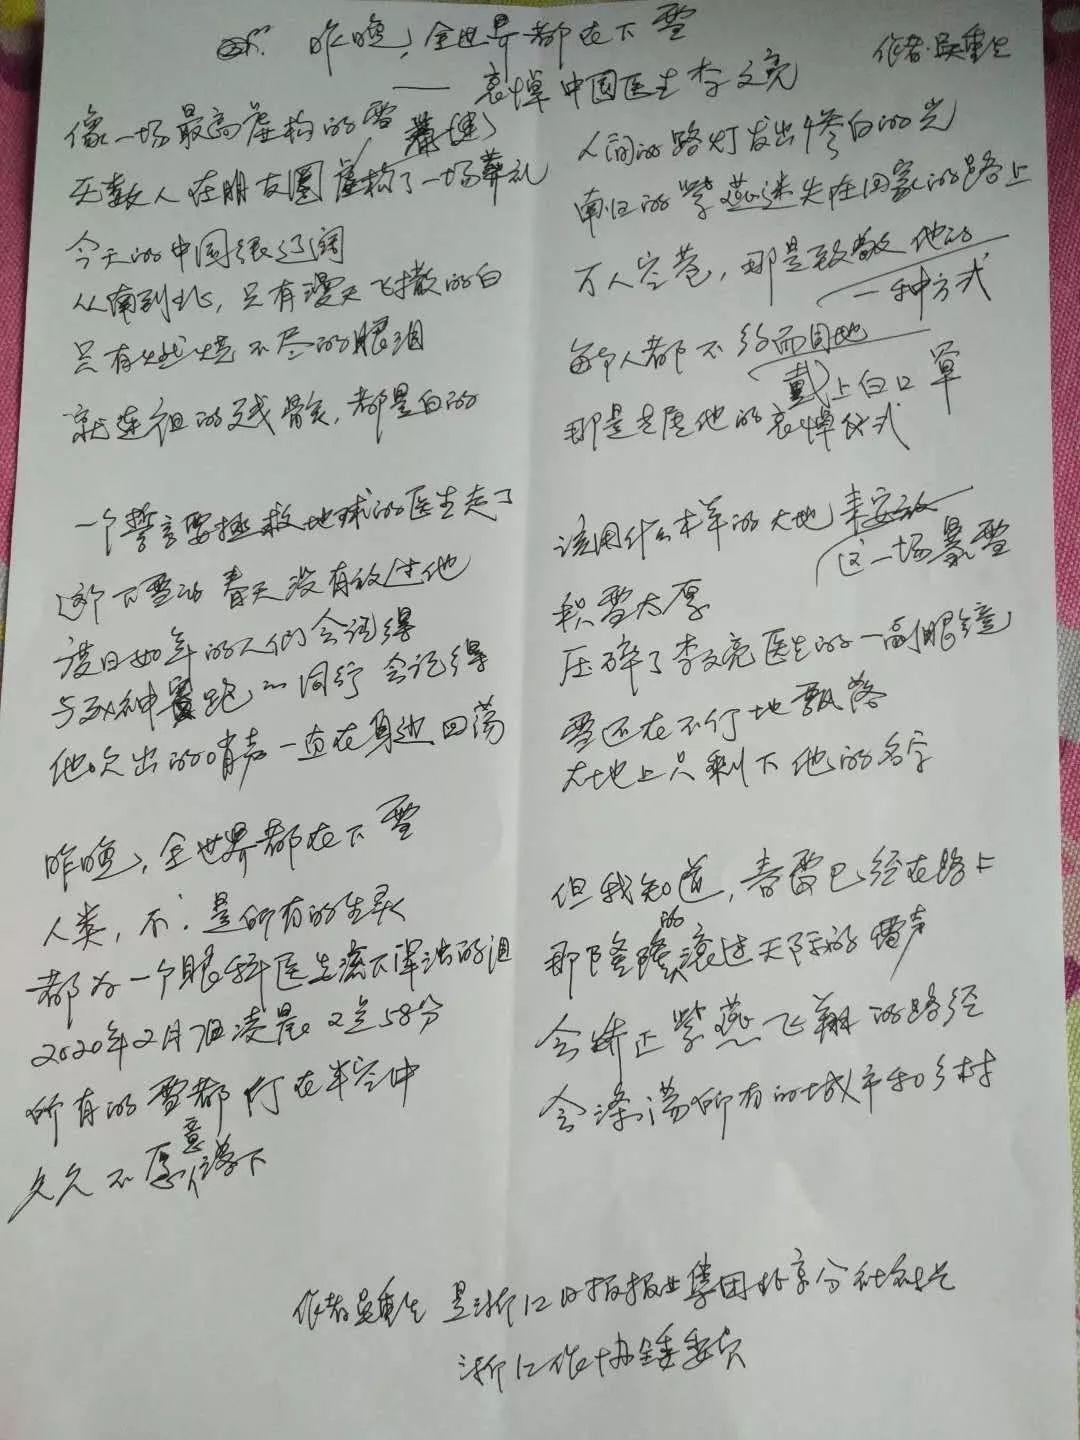 昨晚，全世界都在下雪
——哀悼中国医生李文亮
作者：吴重生
像一场最高虚构的雪
无数人在朋友圈虚构了一场葬礼
今天的中国很辽阔
从南到北，只有漫天飞撒的白
只有燃烧不尽的眼泪
就连祖的残骸，都是白的
一个誓言要拯救地球的医生走了
这个下雪的春天没有放过他
度日如年的人们会记得
与死神赛跑的同行会记得
他吹出的哨声一直在身边回荡
昨晚，全世界都在下雪
人类，不，是所有的生灵
都为一个眼科医生流下浑浊的泪
2020年2月7日凌晨2点58分
所有的雪都停在半空中
久久不愿意落下
人间的路灯发出惨白的光
南归的紫燕迷失在回家的路上
万人空巷，那是致敬他的
一种方式
每个人都不约而同地
戴上白口罩
那是专属他的哀悼仪式
该用什么样的大地来安放
这一场暴雪
积雪太厚
压碎了李文亮医生的一副眼镜
雪还在不停地飘落
大地上只剩下他的名字
但我知道，春雷已经在路上
那隆隆的滚过天际的雷声
会矫正紫燕飞翔的路径
会涤荡所有的城市和乡村
作者吴重生是浙江日报报业集团北京分社社长
浙江作协全委委员